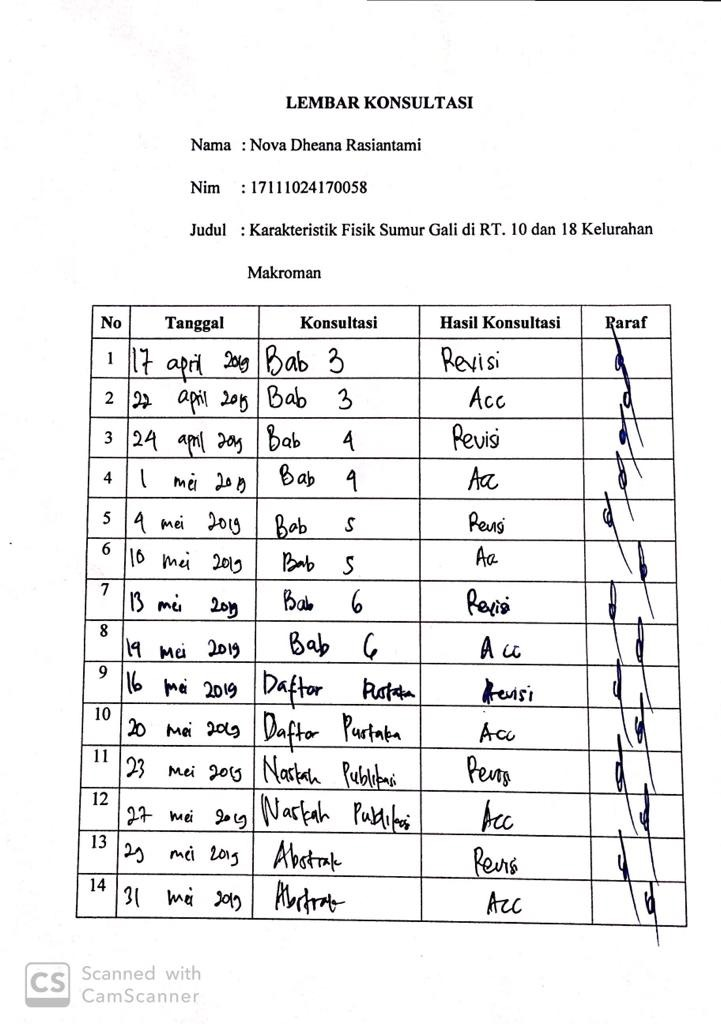 LEMBAR KONSULTASI
Nama : Nova Dheana Rasiantami
Nim : 17111024170058
Judul : Karakteristik Fisik Sumur Gali di RT. 10 dan 18 Kelurahan
Makroman
No Tanggal Konsultasi Hasil Konsultasi Paraf
1 17 april 2019 Bab 3 Revisi
2 22 april 2019 Bab 3 Acc
3 24 april 2019 Bab 4 Revisi
4 1 mei 2019 Bab 4 Acc
5 4 mei 2019 Bab 5 Revisi
6 10 mei 2019 Bab 5 Acc
7 13 mei 2019 Bab 6 Revisi
8 14 mei 2019 Bab 6 Acc
9 16 mei 2019 Daftar Pustaka Revisi
10 20 mei 2019 Daftar Pustaka Acc
11 23 mei 2019 Naskah Publikasi Revisi
12 27 mei 2019 Naskah Publikasi Acc
13 29 mei 2019 Abstrak Revisi
14 31 mei 2019 Abstrak Acc
CS Scanned with
CamScanner